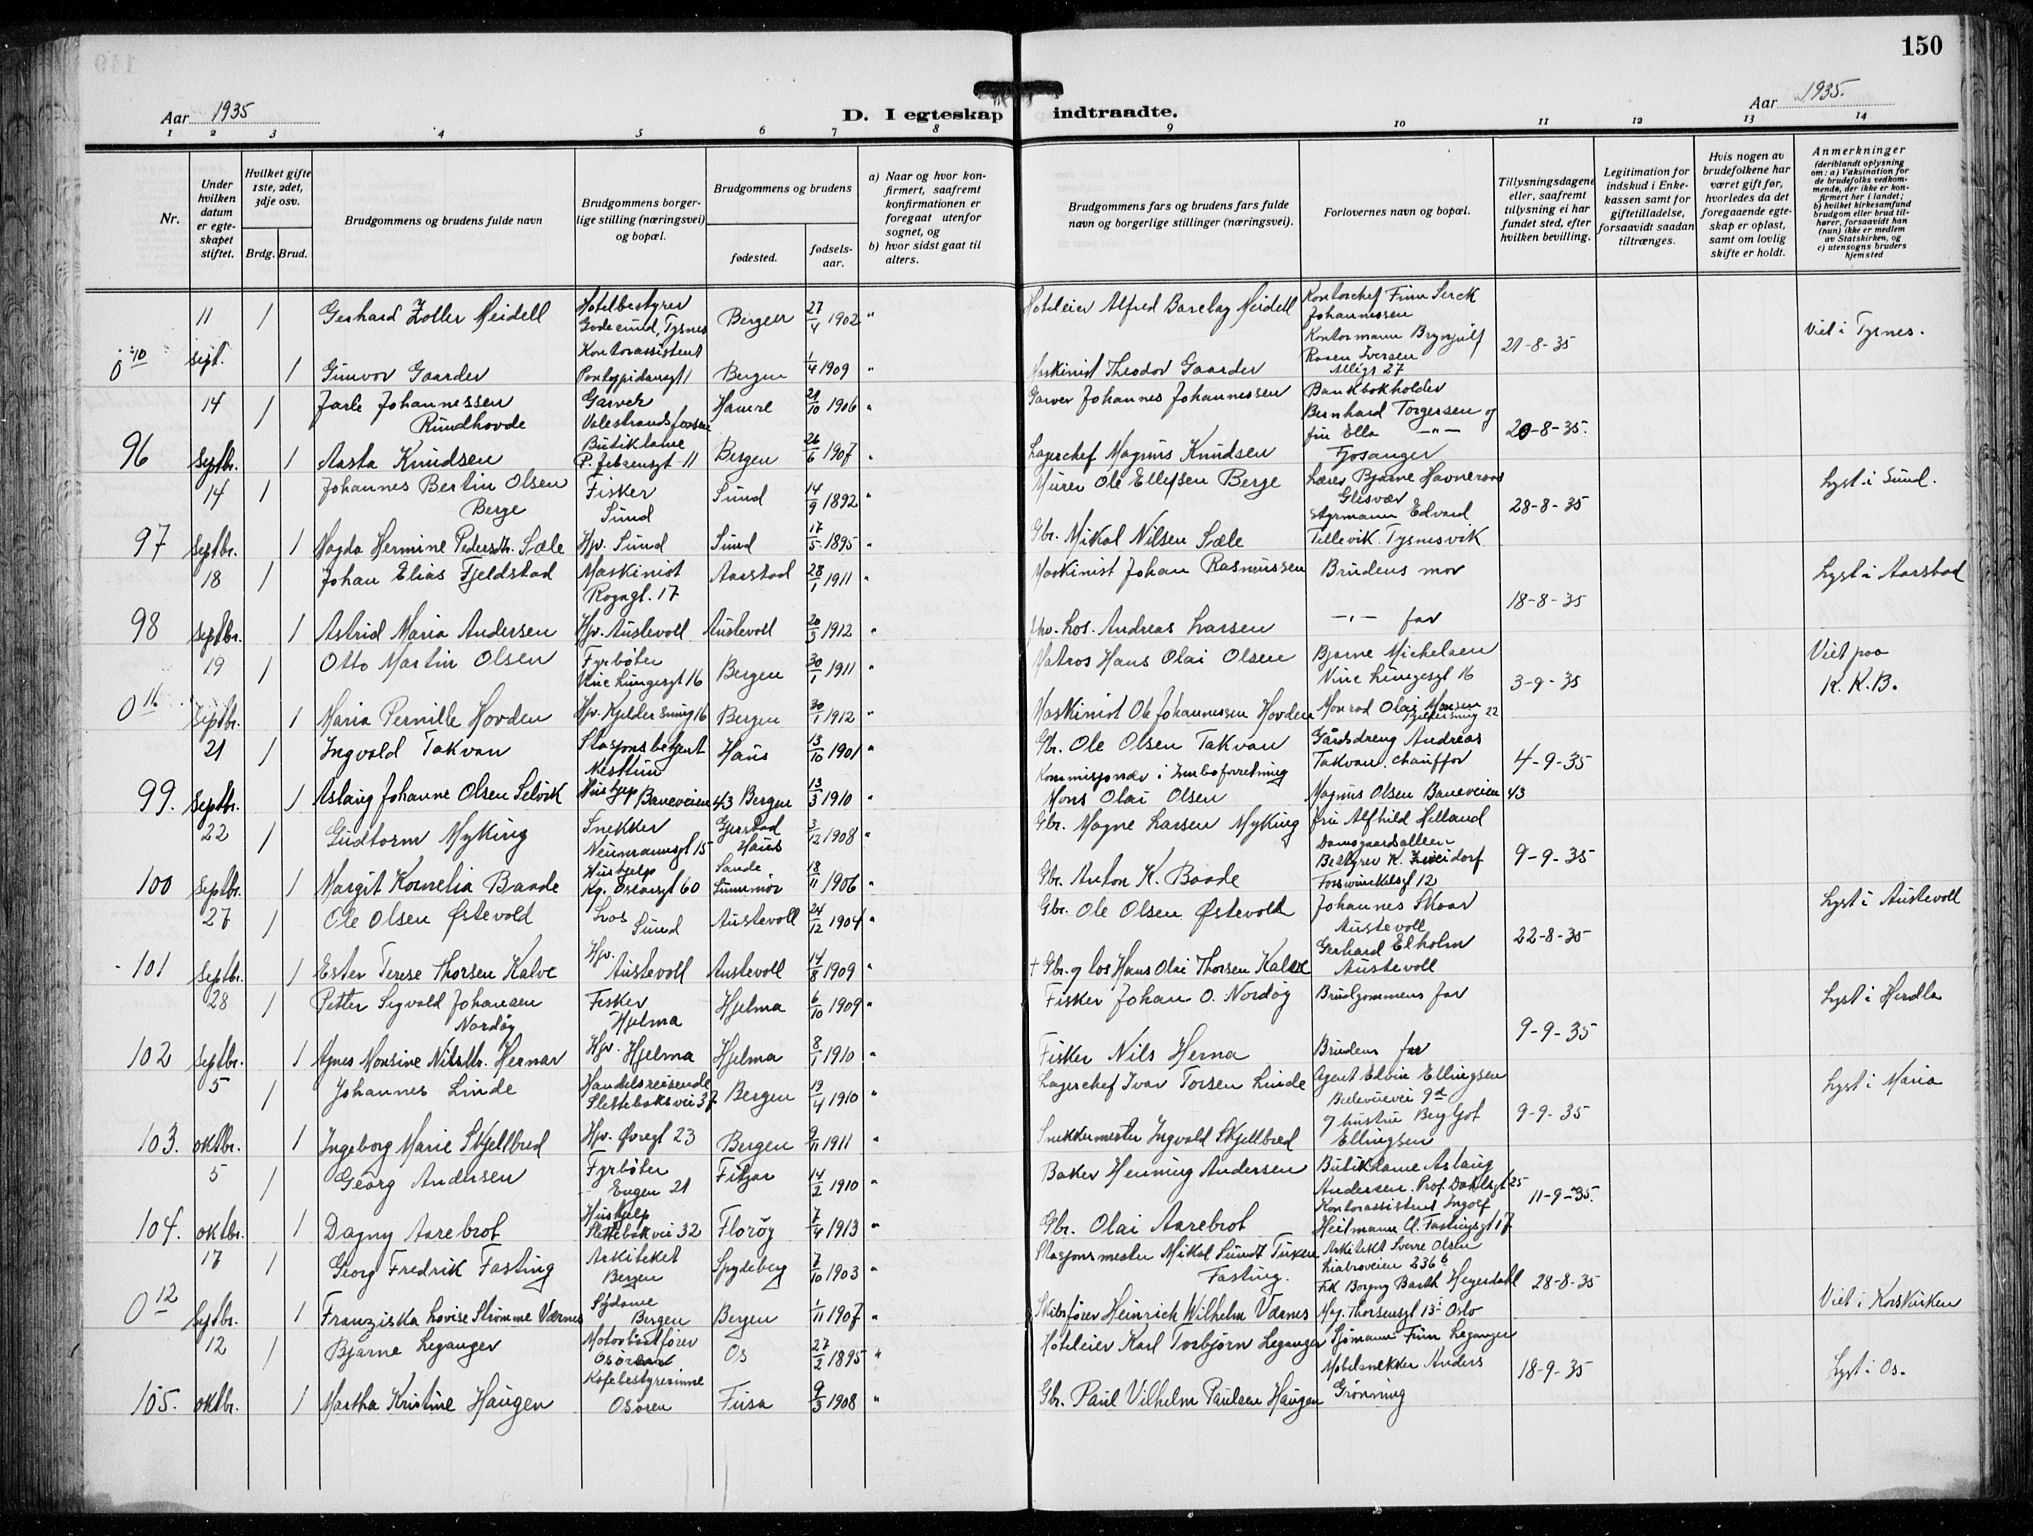 150
Aar 1935
D. I egteskap indtraadte.
Aar 1935.
1 2 3 4 5 6 7 8 9 10 11 12 13 14
Nr.
Under hvilken datum er egteskapet stiftet.
Hvilket gifte 1ste, 2det, 3dje osv.
Brdg. Brud.
Brudgommens og brudens fulde navn
Brudgommens borgerlige stilling (næringsvei) og bopæl.
Brudgommens og brudens
fødested.
fødselsaar.
a) Naar og hvor konfirmert, saafremt konfirmationen er foregaat utenfor sognet, og
b) hvor sidst gaat til alters.
Brudgommens fars og brudens fars fulde navn og borgerlige stillinger (næringsvei).
Forlovernes navn og bopæl.
Tillysningsdagene eller, saafremt tillysning ei har fundet sted, efter hvilken bevilling.
Legitimation for indskud i Enkekassen samt for giftetilladelse, forsaavidt saadan tiltrænges.
Hvis nogen av brudefolkene har været gift før, hvorledes da det foregaaende egteskap er opløst, samt om lovlig skifte er holdt.
Anmerkninger (deriblandt oplysning om: a) Vaksination for de brudefolks vedkommende, der ikke er konfirmert her i landet; b) hvilket kirkesamfund brudgom eller brud tilhører, forsaavidt han (hun) ikke er medlem av Statskirken, og c) utensogns bruders hjemsted
11 1 Gerhard Zoller Meidell Hotelbestyrer Godesund, Tysnes Bergen 27/4 1902 " Hoteleier Alfred Barclay Meidell Kontorchef Finn Serck Johannessen Viet i Tysnes.
0 10 Sept. 1 Gunvor Gaarder Kontorassistent Pontoppidansgt 1 Bergen 1/4 1909 " Maskinist Theodor Gaarder Kontormann Brynjulf Rosen Iversen Allégt 27 21-8-35
14 1 Jarle Johannessen Rundhovde Garver Valestrandsfossen Hamre 21/10 1906 " Garver Johannes Johannessen Bankbokholder Bernhard Torgersen og
96 Septbr. 1 Aasta Knudsen Butikdame P. Jebsensgt 11 Bergen 26/6 1907 " Lagerchef Magnus Knudsen fru Ella -"- Fjøsanger 20-8-35.
14 1 Johannes Bertin Olsen Berge Fisker Sund Sund 14/9 1892 " Murer Ole Ellefsen Berge Lærer Bjarne Havneraas Glesvær Lyst i Sund.
97 Septbr. 1 Magda Hermine Pedersdtr. Sæle Hjv. Sund Sund 17/5 1895 " Gbr. Mikal Nilsen Sæle Styrmann Edvard Tillevik. Tysnesvik 28-8-35
18 1 Johan Elias Fjeldstad Maskinist Rogngt. 17 Aarstad 28/1 1911 " Maskinist Johan Rasmussen Brudens mor Lyst i Aarstad
98 Septbr. 1 Astrid Maria Andersen Hjv. Austevoll Austevoll 20/3 1912 " fhv. Los. Andreas Larsen -"- far 18-8-35
19 1 Otto Martin Olsen Fyrbøter Vine Lungesgt 16 Bergen 30/1 1911 " Matros Hans Olai Olsen Bjarne Michelsen Vine Lungesgt 16 Viet paa K. K.B.
0 16 Septbr. 1 Maria Pernille Hovden Hjv. Kjeldersmug 16 Bergen 30/1 1912 " Maskinist Ole Johannessen Hovden Monrad Olai Monsen Kjeldersmug 22 3-9-35
21 1 Ingvald Takvam Stasjonsbetjent Nesttun Haus 13/10 1901 " Gbr. Ole Olsen Takvam Gårdsdreng Andreas Takvam. chauffør
99. Septbr. 1 Aslaug Johanne Olsen Selvik Hushjelp Baneveien 43 Bergen 13/3 1910 " Kommisjonær i Innboforretning Mons Olai Olsen Magnus Olsen Baneveien 43 4-9-35
22 1 Gudtorm Myking Snekker Neumannsgt 15 Gjerstad Haus 3/12 1908 " Gbr. Magne Larsen Myking fru Alfhild Helland Damsgaardsalleen
100 Septbr. 1 Margit Kornelia Baade Hushjelp Kg. Oscarsgt 60 Sande Sunnmør 18/11 1906 " Gbr. Anton K. Baade Bestyrer K. Zweidorf Forswinkelsgt 12 9-9-35
27 1 Ole Olsen Østevold Los Sund Austevoll 24/12 1904 " Gbr. Ole Olsen Østevold Johannes Skaar Austevoll Lyst i Austevoll
101 Septbr. 1 Ester Terese Thorsen Kalve Hjv. Austevoll Austevoll 14/8 1909 " + Gbr. og los Hans Olai Thorsen Kalve Gerhard Elholm Austevoll 22-8-35
28 1 Petter Sigvald Johansen Nordøy Fisker Hjelma Hjelma 6/10 1909 " Fisker Johan O. Nordøy Brudgommens far Lyst i Herdla
102 Septbr. 1 Agnes Monsine Nilsdtr. Hernar Hjv. Hjelma Hjelma 8/1 1910 " Fisker Nils Herna Brudens far 9-9-35
5 1 Johannes Linde Handelsreisende Slettebaksvei 37 Bergen 19/4 1910 " Lagerchef Ivar Torsen Linde Agent Edvin Ellingsen Bellevuevei 9a Lyst i Maria
103. oktbr. 1 Ingeborg Marie Skjellbred Hjv. Øvregt 23 Bergen 9/11 1911 " Snekkermester Ingvald Skjellbred og hustru Bergljot Ellingsen 9-9-35
5 1 Georg Andersen Fyrbøter Engen 21 Fitjar 14/2 1910 " Baker Henning Andersen Butikdame Aslaug Andersen. Prof. Dahlsgt 25
104. oktbr. 1 Dagny Aarebrot Hushjelp Slettebakvei 32 Florøy 7/4 1913 " Gbr. Olai Aarebrot Kontorassistent Ingolf Heitmann Cl. Fastingsgt 17 11-9-35.
17 1 Georg Fredrik Fasting Arkitekt Bergen Spydeberg 7/10 1903 " Stasjonsmester Mikal Sundt Tuxen Fasting. Arkitekt Sverre Olsen Liabroveien 236b
0 12 Septbr. 1 Franziska Lovise Strømme Værnes Sydame Bergen Bergen 1/11 1907 " Skibsfører Heinrich Wilhelm Værnes Frk Borgny Barth Heyerdahl Mag. Thorsensgt 13 Oslo 28-8-35 Viet i Korskirken
12 1 Bjarne Leganger Motorbaatfører Osøren Os 27/2 1895 " Hoteleier Karl Torbjørn Leganger Sjømann Finn Leganger
105. oktbr. 1 Martha Kristine Haugen Kafebestyrerinne Osøren Fusa 9/3 1908 " Gbr. Paul Vilhelm Paulsen Haugen Møbelsnekker Anders Grønning 18-9-35 Lyst i Os.